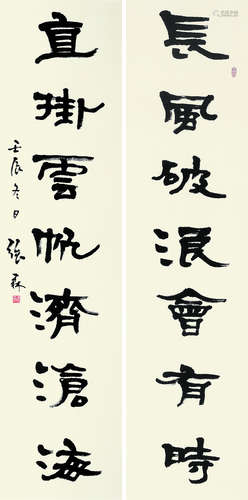 長風破浪會有時
直掛雲帆濟滄海
壬辰冬日 張森